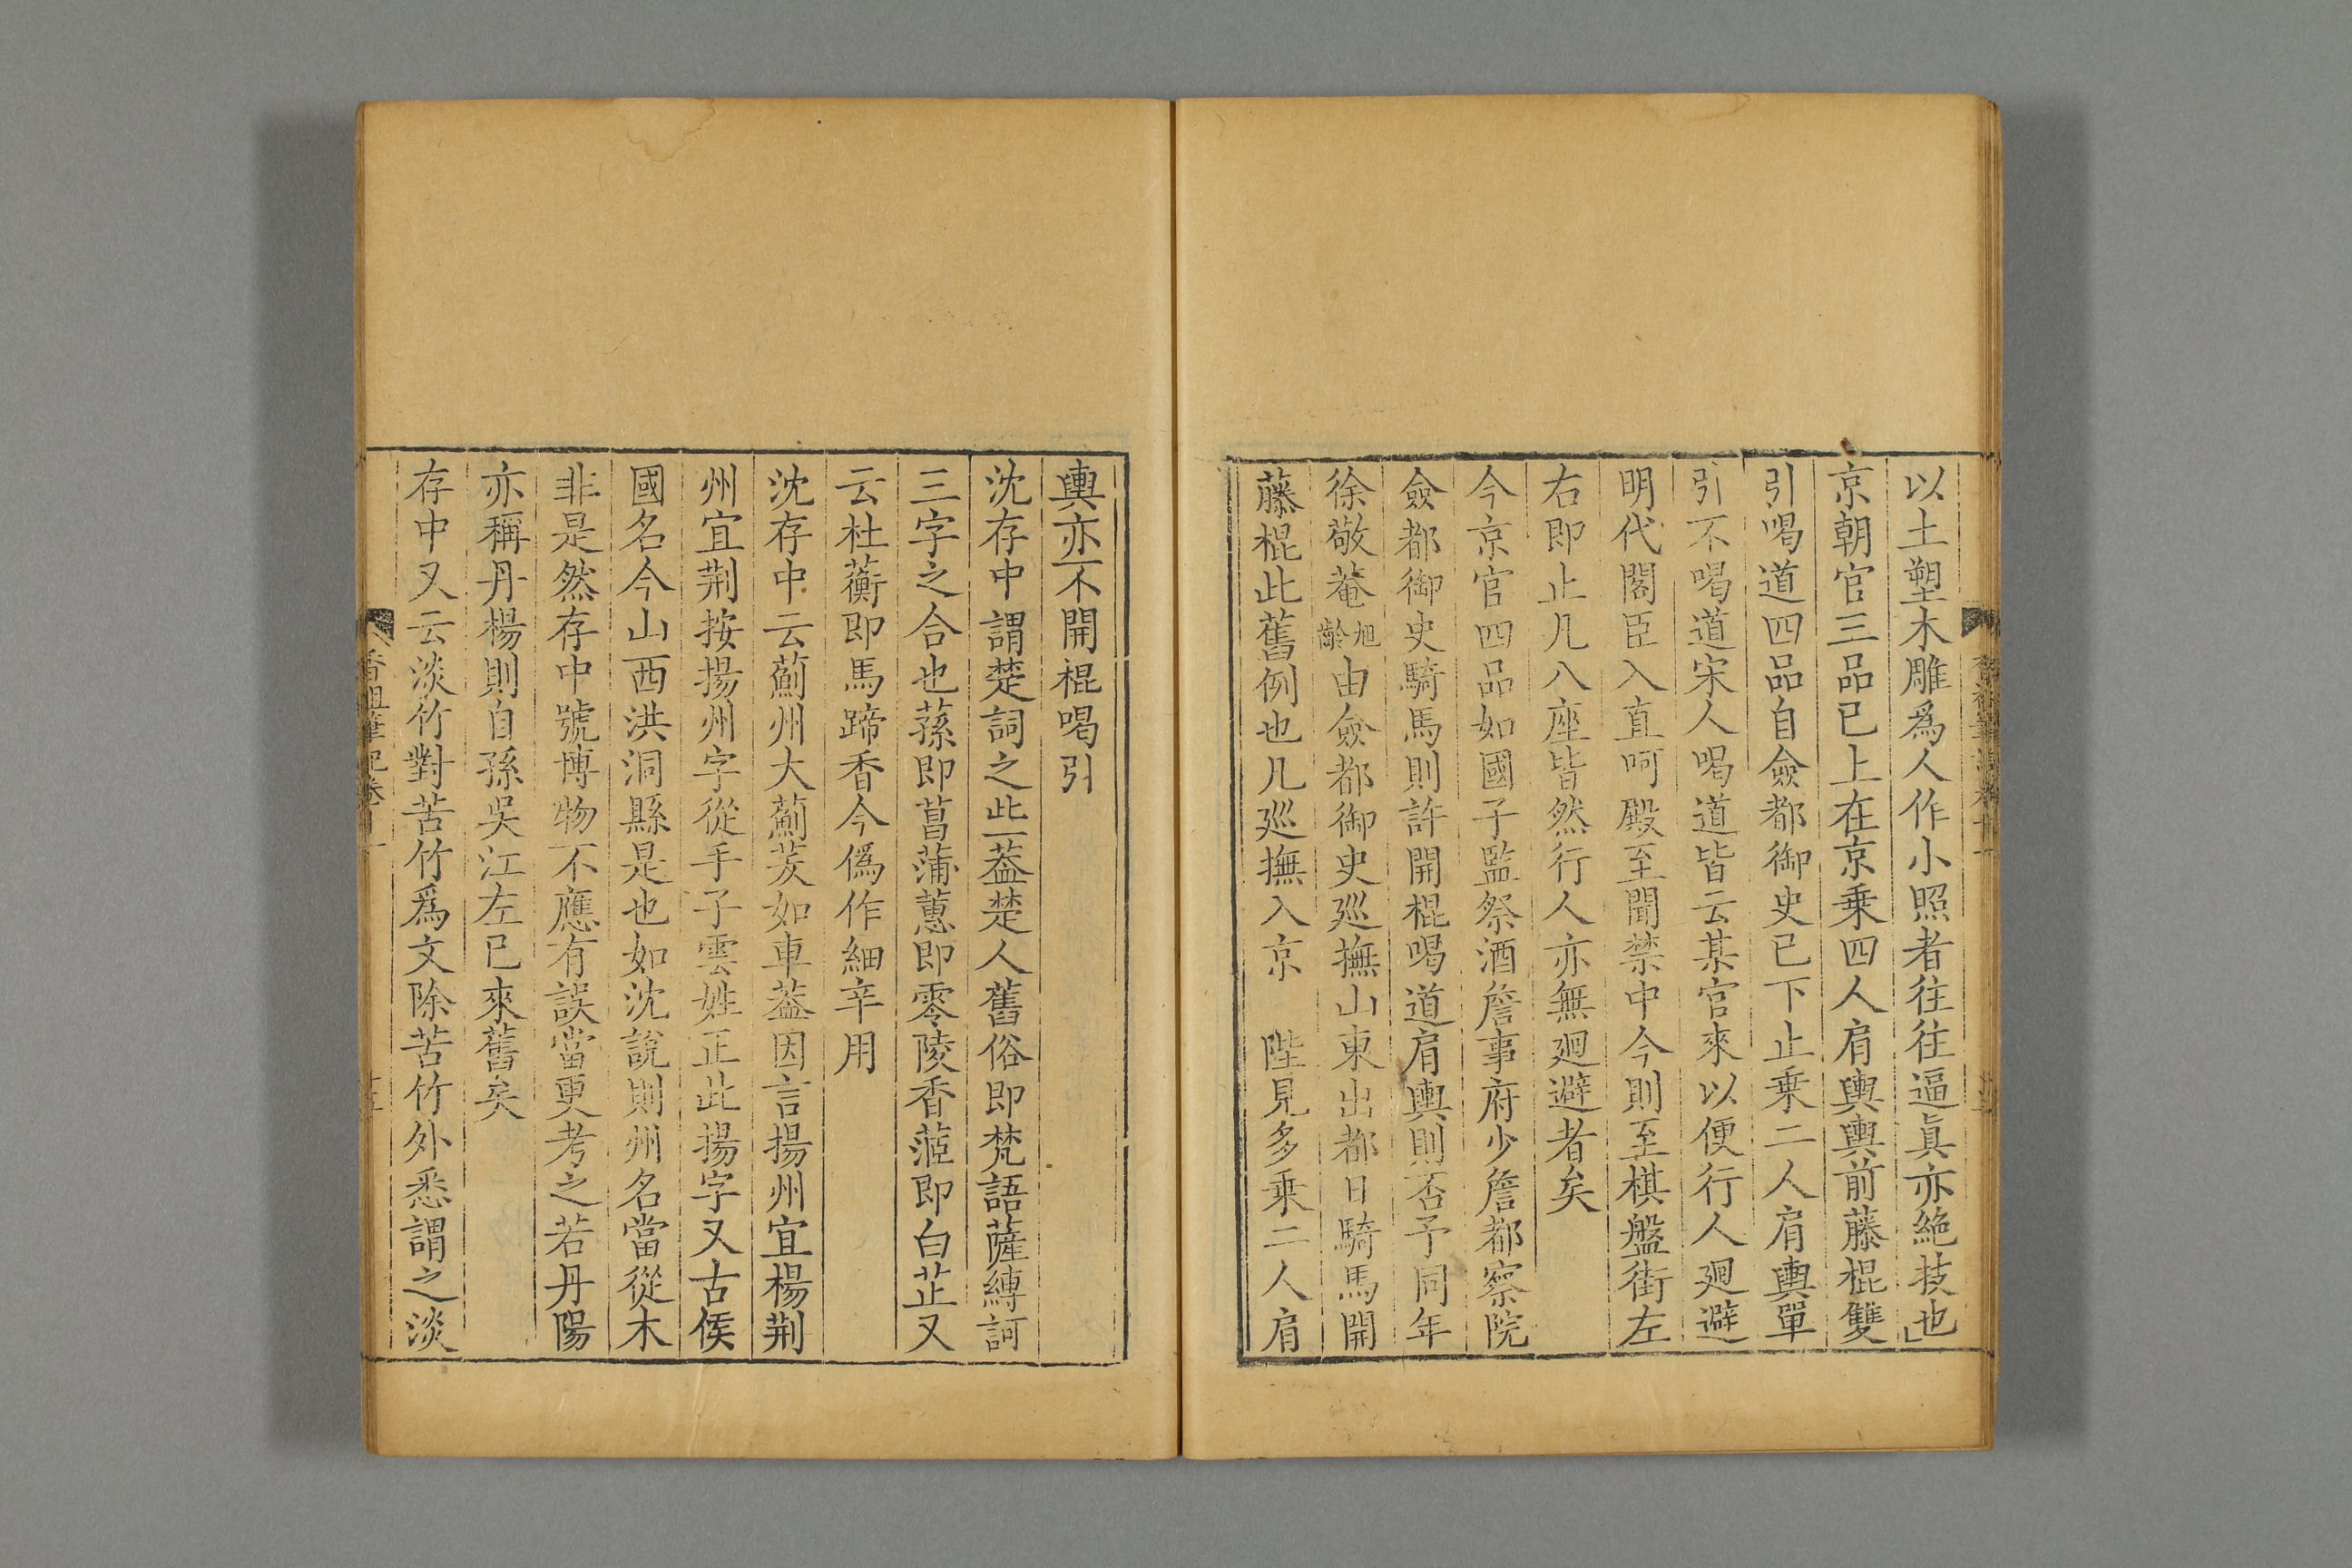 以土塑木雕爲人作小照者往往逼眞亦絶技也
京朝官三品已上在京乗四人肩輿輿前藤棍雙
引喝道四品自僉都御史已下止乗二人肩輿單
引不喝道宋人喝道皆云某官來以便行人廻避
明代閣臣入直呵殿至聞禁中今則至棋盤街左
右即止凡八座皆然行人亦無廻避者矣
今京官四品如國子監祭酒詹事府少詹都察院
僉都御史騎馬則許開棍喝道肩輿則否予同年
徐敬菴旭齡由僉都御史巡撫山東出都日騎馬開
藤棍此舊例也凡巡撫入京 陛見多乗二人肩
輿亦不開棍喝引
沈存中謂楚詞之些葢楚人舊俗即梵語薩縛訶
三字之合也蓀即菖蒲蕙即零陵香茝即白芷又
云杜蘅即馬蹄香今僞作細辛用
沈存中云薊州大薊茇如車葢因言揚州宜楊荆
州宜荆按揚州字從手子雲姓正此揚字又古侯
國名今山西洪洞縣是也如沈說則州名當從木
非是然存中號博物不應有誤當更考之若丹陽
亦稱丹楊則自孫吳江左已來舊矣
存中又云淡竹對苦竹爲文除苦竹外悉謂之淡
香祖筆記卷十一